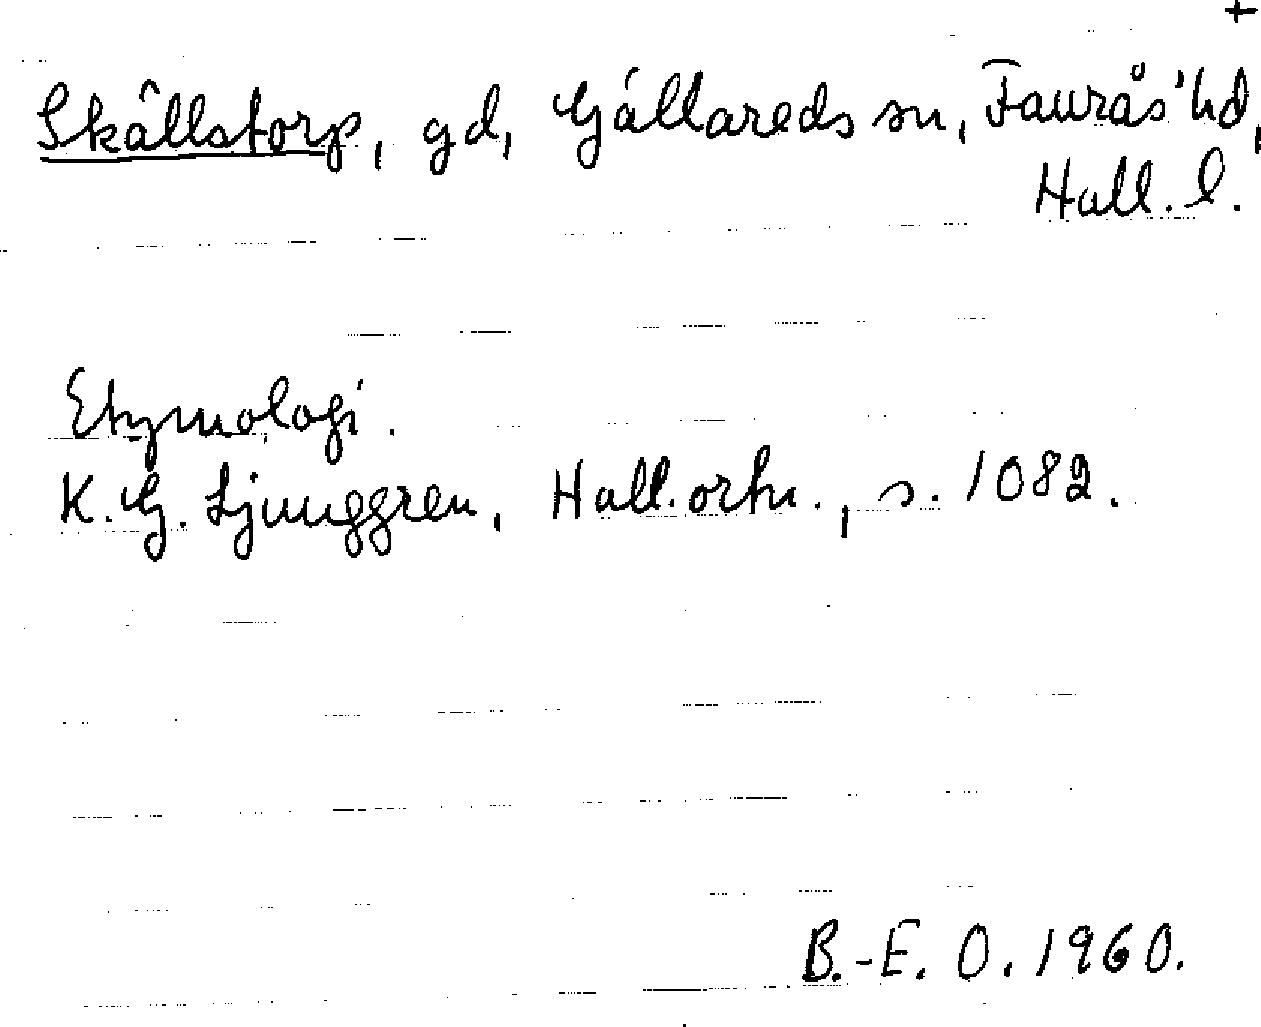 +
Skållstorp, gd, Gällareds sn, Faurås hd,
Hall. l.
Etymologi.
K. G. Ljunggren, Hall. ortn., s. 1082.
B.-E. O. 1960.